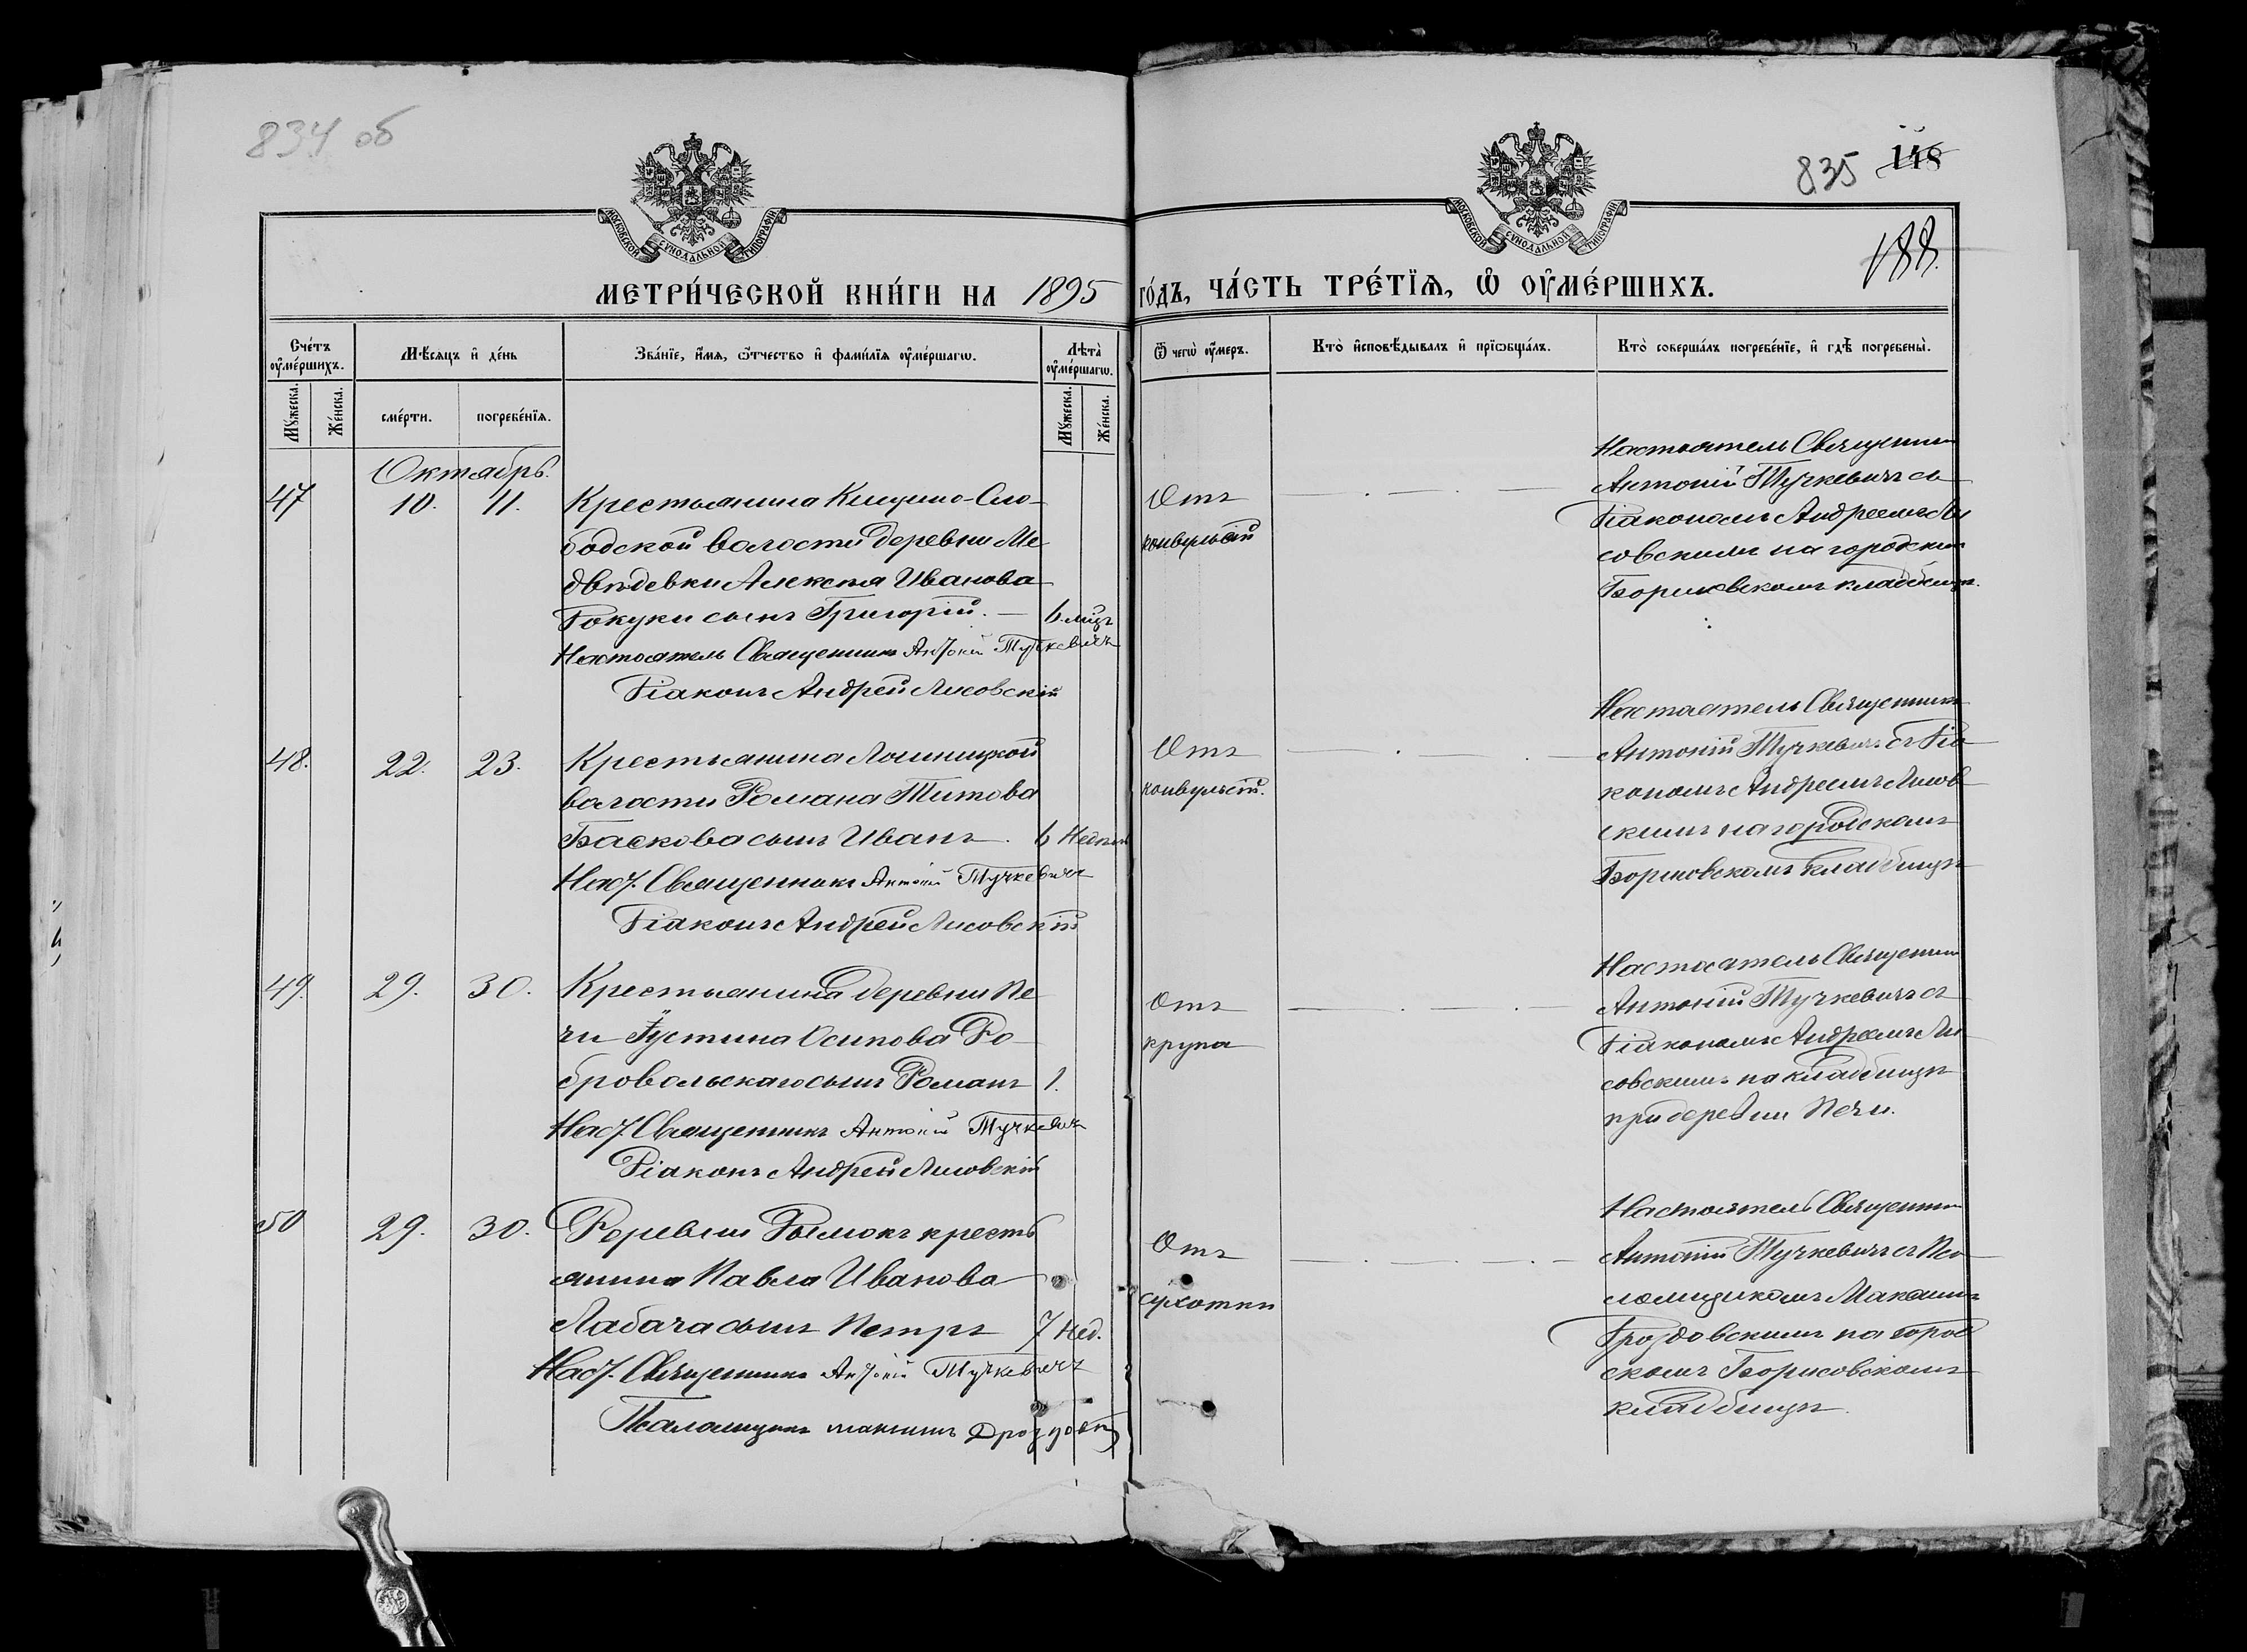 834 об
835 148
188.
МОСКОВСКОЙ СѴНОДАЛЬНОЙ ТИПОГРАФІИ
МОСКОВСКОЙ СѴНОДАЛЬНОЙ ТИПОГРАФІИ
МЕТРИ́ЧЕСКОЙ КНИ́ГИ НА 1895 ГО́ДЪ, ЧА́СТЬ ТРЕ́ТЇѦ, Ѡ ОУ҆МЕ́РШИХЪ.
Сче́тъ оу҆ме́ршихъ.
Мѣ́сяцъ и҆ де́нь
Зва́нїе, и҆́мѧ, ѻ҆́тчество и҆ фами́лїѧ оу҆ме́ршагѡ.
Лѣта̀ оу҆ме́ршагѡ.
Ѿ чегѡ̀ оу҆́меръ.
Кто̀ и҆сповѣ́дывалъ и҆ прїѡбща́лъ.
Кто̀ соверша́лъ погребе́нїе, и҆ гдѣ̀ погребены̀.
Мꙋ́жеска.
Же́нска.
сме́рти.
погребе́нїѧ.
Мꙋ́жеска.
Же́нска.
Октябрь.
47
10. 11.
Крестьянина Кищино-Сло-
бодской волости деревни Ме
двѣдевки Алексѣя Иванова
Докуки сынъ Григорій. — 6 мцъ
Настоятель Священникъ Антоній Тучкевичъ
Діаконъ Андрей Лисовскій
Отъ
конвульсій
Настоятель Священникъ
Антоній Тучкевичъ съ
Діакономъ Андреемъ Ли
совскимъ на городскомъ
Борисовскомъ кладбищѣ.
48.
22. 23.
Крестьянина Лошницкой
волости Романа Титова
Баскова сынъ Иванъ. 6 Недѣль
Наст. Священникъ Антоній Тучкевичъ
Діаконъ Андрей Лисовскій
Отъ
конвульсій.
Настоятель Священникъ
Антоній Тучкевичъ съ Діа
кономъ Андреемъ Лисов
скимъ на городскомъ
Борисовскомъ кладбищѣ
49.
29. 30.
Крестьянина деревни Пе
чи Іустина Осипова До
бровольскаго сынъ Романъ 1.
Наст. Священникъ Антоній Тучкевичъ
Діаконъ Андрей Лисовскій
Отъ
крупа
Настоятель Священникъ
Антоній Тучкевичъ съ
Діакономъ Андреемъ Ли
совскимъ на кладбищѣ
при деревни Печи.
50
29. 30.
Деревни Дымокъ кресть
янина Павла Иванова
Лабача сынъ Петръ 7 нед.
Наст. Священникъ Антоній Тучкевичъ
Псаломщикъ Максимъ Дроздовскій
Отъ
сухотки
Настоятель Священникъ
Антоній Тучкевичъ съ Пса
ломщикомъ Максимомъ
Дроздовскимъ на город
скомъ Борисовскомъ
кладбищѣ.